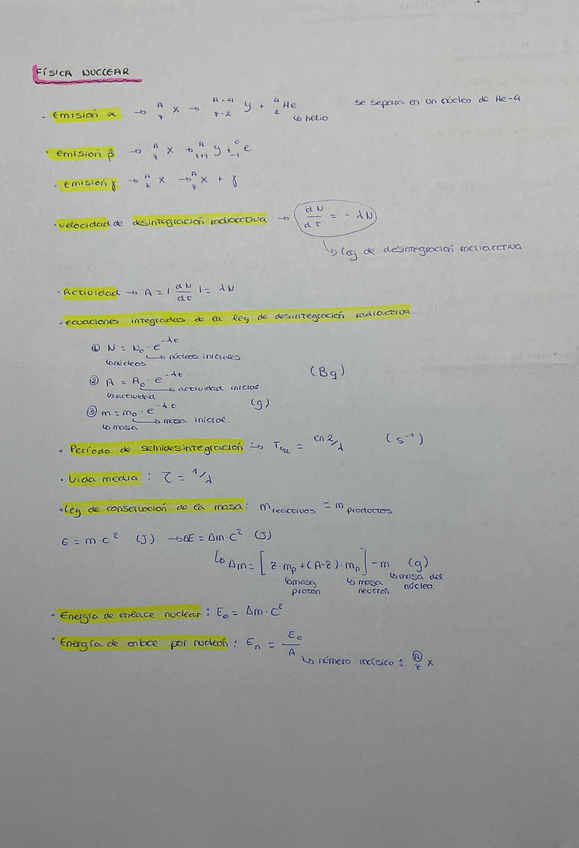 FÍSICA NUCLEAR
· Emisión α → ᴬ_Z X → ᴬ⁻⁴_Z-2 y + ⁴_2 He se separa en un núcleo de He-4
↳ helio
· Emisión β → ᴬ_Z X → ᴬ_Z+1 y + ⁰_-1 e
· Emisión γ → ᴬ_Z X → ᴬ_Z X + γ
· Velocidad de desintegración radioactiva → dN/dt = -λN
↳ Ley de desintegración radiactiva
· Actividad → A = |dN/dt| = λN
· Ecuaciones integradas de la ley de desintegración radiactiva.
① N = N₀ · e^-λt
↳ núcleos ↳ núcleos iniciales
② A = A₀ · e^-λt (Bq)
↳ actividad ↳ actividad inicial
③ m = m₀ · e^-λt (g)
↳ masa ↳ masa inicial.
· Período de semidesintegración → T_1/2 = ln 2/λ (s⁻¹)
· Vida media : τ = 1/λ
· Ley de conservación de la masa: m reactivos = m productos
E = m c² (J) → ΔE = Δm · c² (J)
↳ Δm = [Z · mp + (A-Z) · mn] - m (g)
↳ masa protón ↳ masa neutrón ↳ masa del núcleo.
· Energía de enlace nuclear : Ee = Δm · c²
· Energía de enlace por nucleón : En = Ee/A
↳ número másico : Ⓐ_Z X